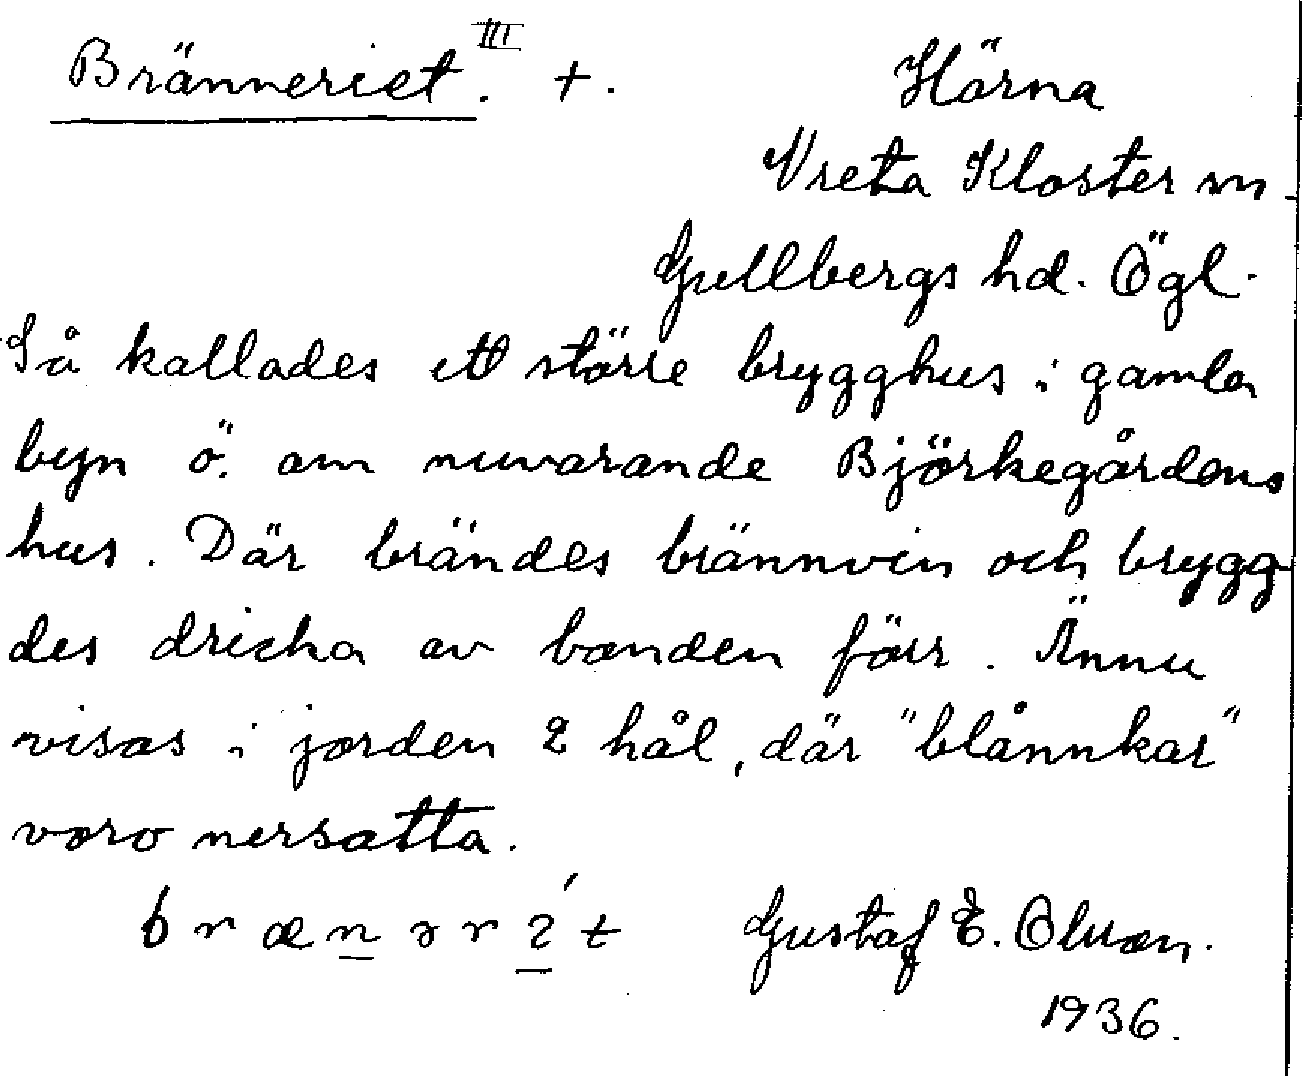 Bränneriet. III +. Härna
Vreta Kloster sn
Gullbergs hd. Ögl.
Så kallades ett större brygghus i gamla
byn ö. om nuvarande Björkegårdens
hus. Där brändes brännvin och brygg
des dricka av bonden förr. Ännu
visas i jorden 2 hål, där "blånnkar"
voro nersatta.
Gustaf E. Olsson.
1936.